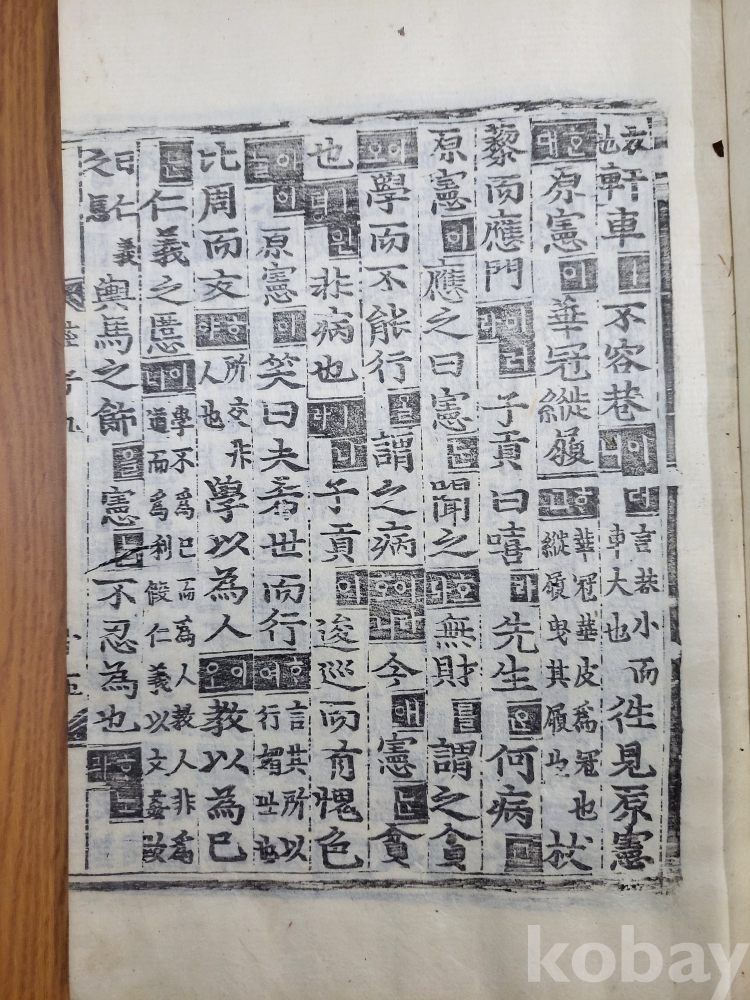 衣也軒車ㅣ不容巷이더니言巷小而車大也往見原憲
혼대原憲이華冠縰履ᄒᆞ고華冠華皮爲冠也縰履曳其履也杖
藜而應門이러라子貢曰嘻라先生은何病고
原憲이應之曰憲은聞之호니無財를謂之貧
이오學而不能行을謂之病이라호니今애憲은貧
也ㅣ언뎡非病也ㅣ니라子貢이逡巡而有愧色
이어늘原憲이笑曰夫希世而行ᄒᆞ며言其所以行媚世也
比周而交ᄒᆞ며所交非人也學以為人이오教以為己
ᄂᆞᆫ仁義之慝이나學不爲己而爲人教人非爲道而爲利假仁義以文姦故
曰仁義之慝輿馬之飾을憲은不忍為也ᄒᆞ노라
kobay